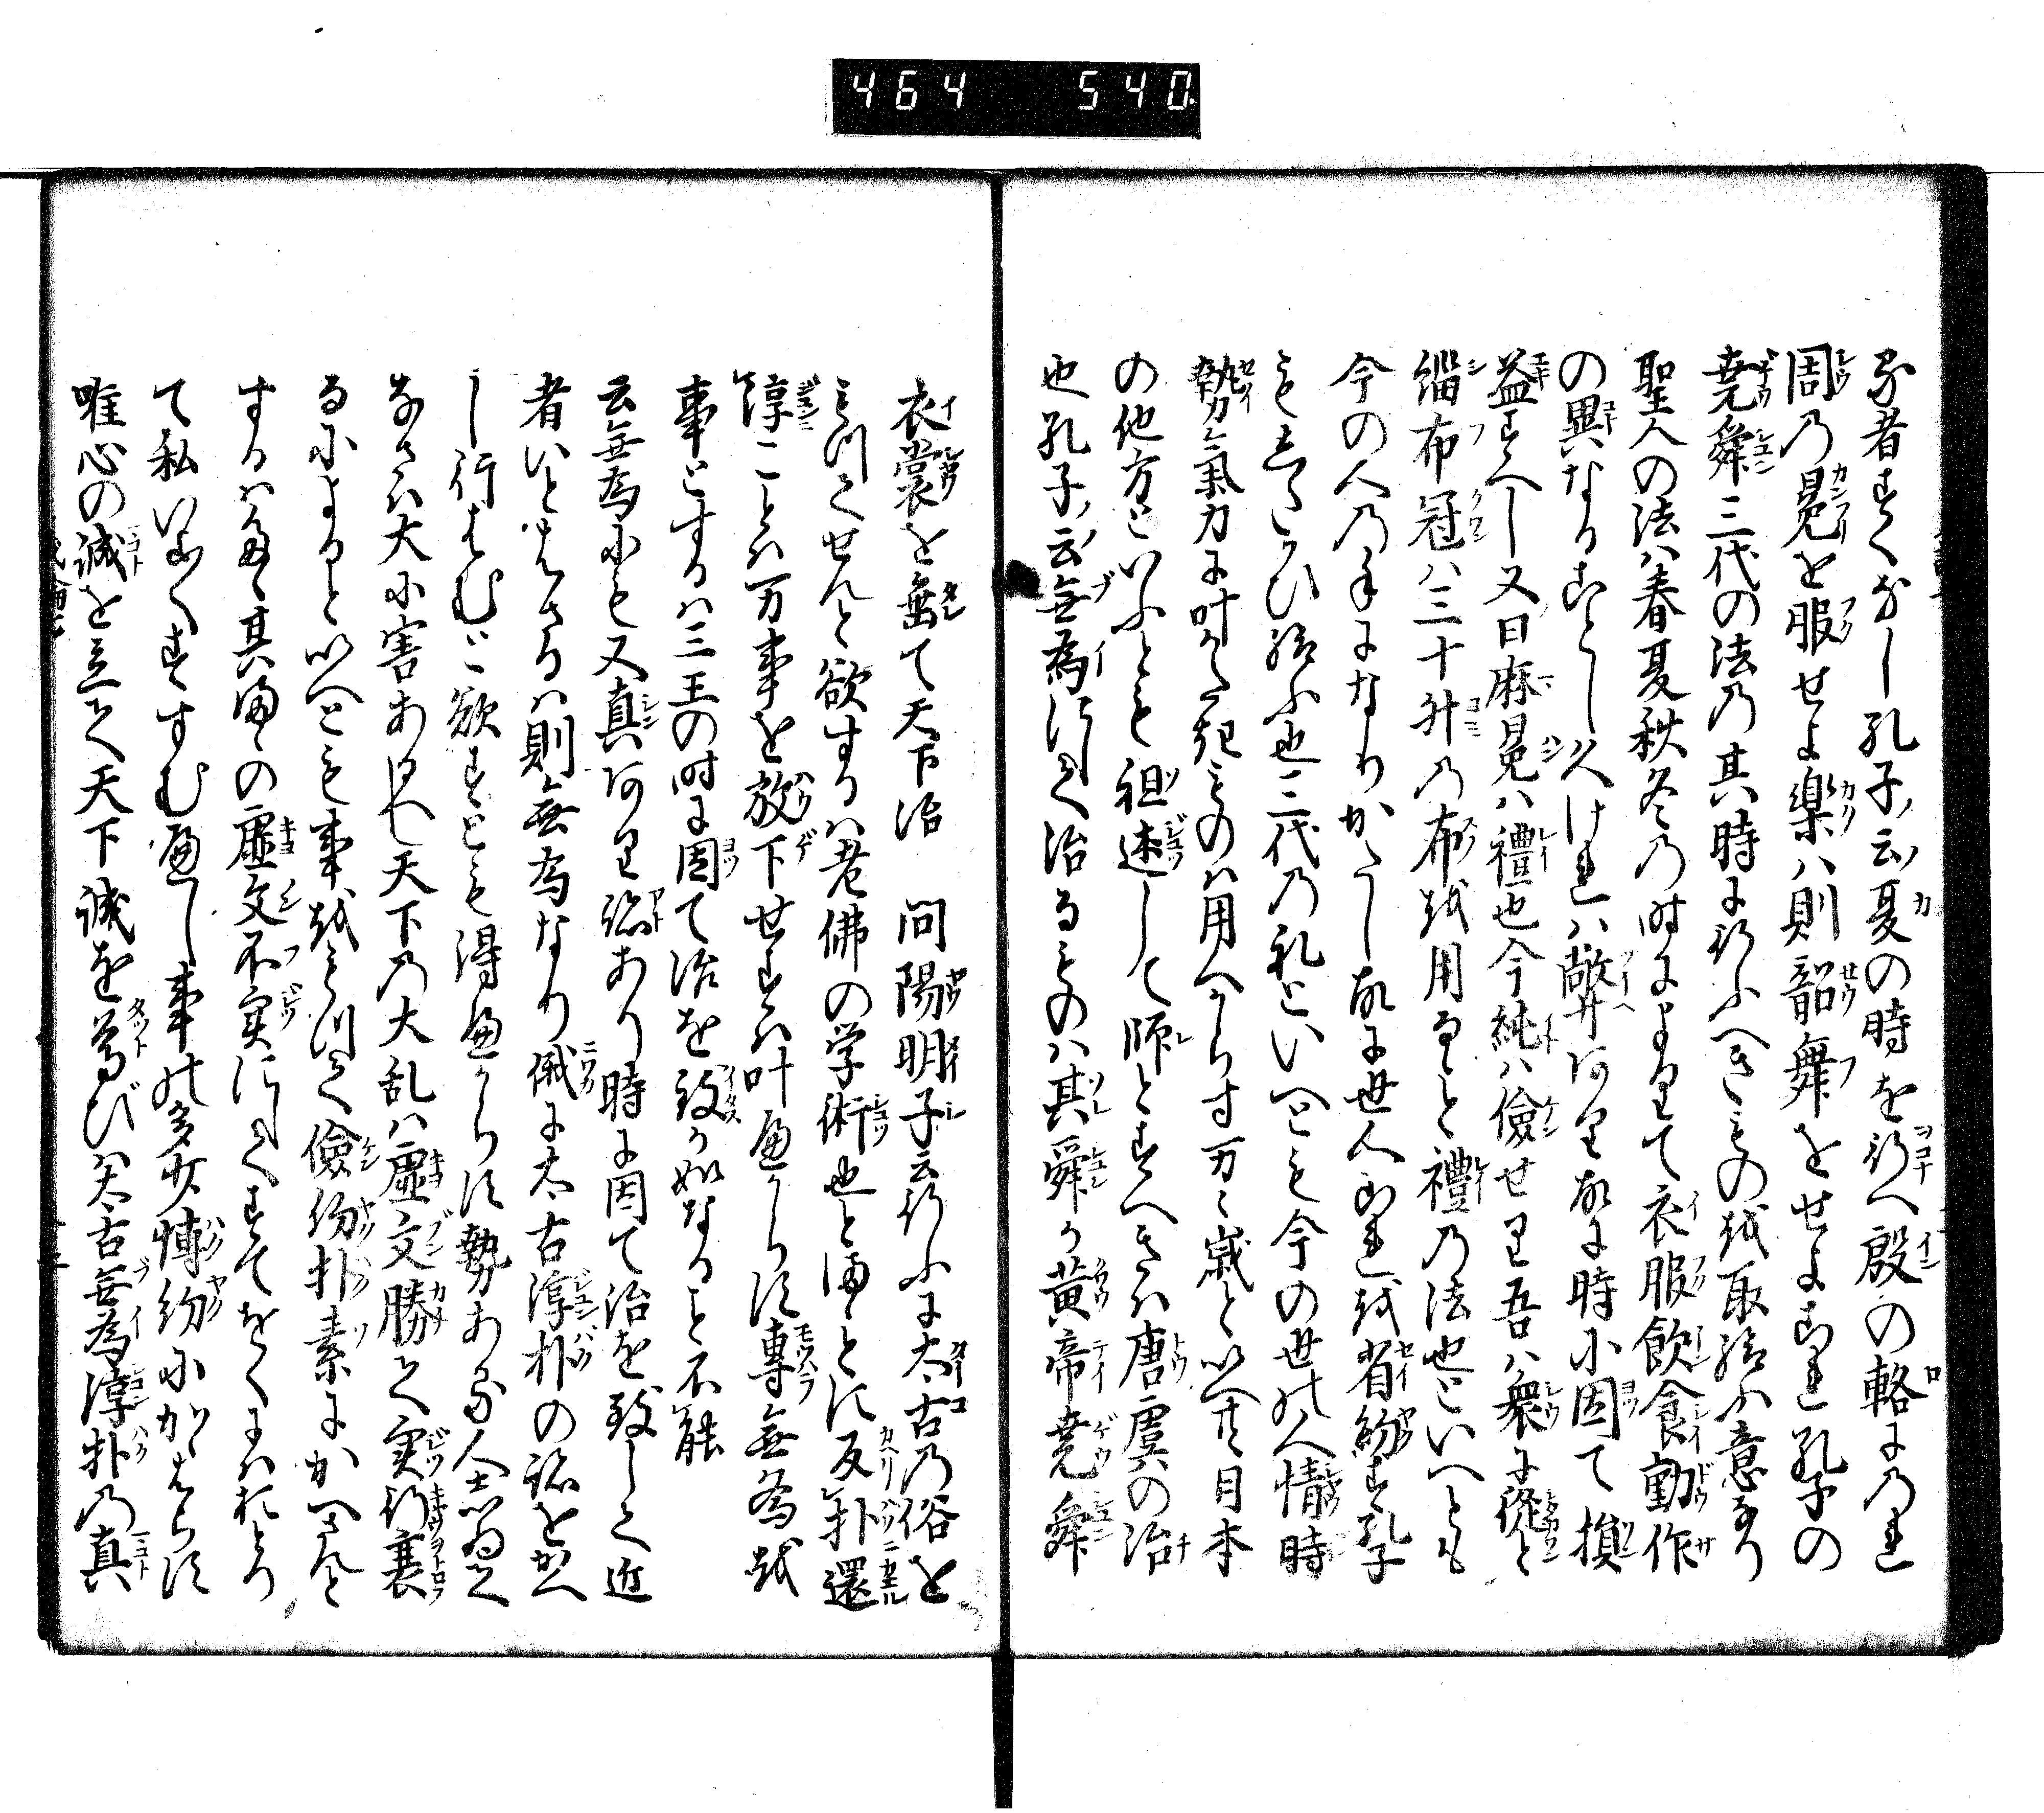 464 540
る者すくなし孔子ノ云ノ夏の時を行へ殷の輅にのれ
周の冕を服せよ楽ハ則韶舞をせよこれ孔子の
堯舜三代の法の其時に行ふへきものを取給ふ意なり
聖人の法ハ春夏秋冬の時によりて衣服飲食動作
の異なることし久けれハ弊ありあに時に因て損
益すへし又曰麻冕ハ禮也今純ハ儉せり吾ハ衆に從と
緇布冠ハ三十升の布を用ると禮の法也といへとも
今の人の手になりかたし故に世人これを省約す孔子
もしたかひ給ふ也三代の礼といへとも今の世の人情時
勢氣力に叶かたきものハ用へからす万々歳と以来日本
の他方といふとも祖述して師とすへきハ唐虞の治
也孔子ノ云ノ無為にして治るものハ其舜か黄帝堯舜
衣裳を垂て天下治 問陽明子云行ふに太古の俗を
みつくせんと欲するハ老佛の学術也とまことに反朴還
淳ことハ万事を放下せすハ叶へからす專無為を
事とするハ三王の時に因て治を致か如なること不能
云無為にも又真あり跡あり時に因て治を致して近
者いとはさるハ則無為なり俄に太古淳朴の跡をかへ
し行はむと欲すとも得へからす勢ある人志ゐて
なさハ大に害あり凡天下の大乱ハ虚文勝て実行衰
るによると以へとも事をもつて儉約朴素にかへさんと
するハまた其まゝの虚文不実にしてすてをくにハおとり
て私いよ〳〵すすむへし事の多少博約にかゝはらす
唯心の誠を立て天下誠を尊びハ太古無為淳朴の真